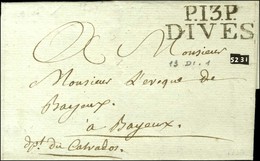 P.13.P.
DIVES
A Monsieur
13 DI.1
5231
Monsieur L'eveque de
Bayeux.
à Bayeux.
dpt. du Calvados.